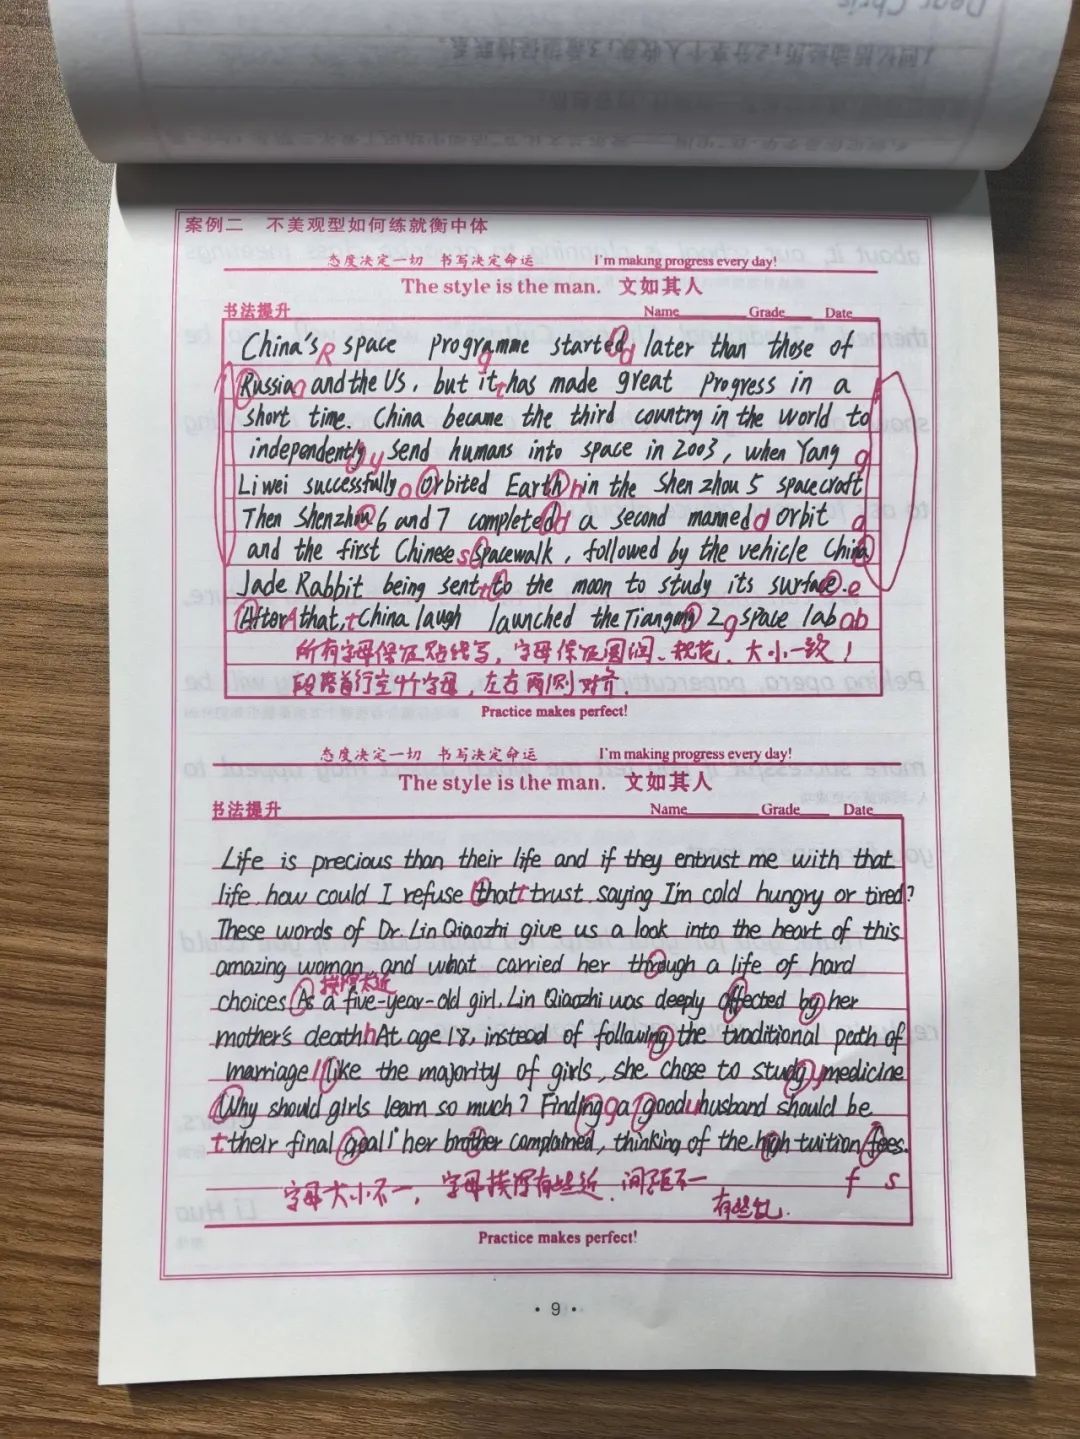 Dear Chris
案例二 不美观型如何练就衡中体
态度决定一切 书写决定命运 I'm making progress every day!
The style is the man. 文如其人
书法提升 Name Grade Date
China's R space programme started d later than those of
g
Russia a and the US, but it t has made great progress in a
short time. China became the third country in the world to
independently y send humans into space in 2003, when Yang g
Liwei successfully o orbited Earth h in the Shen zhou 5 spacecraft
Then Shenzhou 6 and 7 completed d a second manned d orbit d
and the first Chinese s spacewalk, followed by the vehicle China
Jade Rabbit being sent t to the moon to study its surface. e
After A that, t China laugh launched the Tiangong 2 g space lab ab
所有字母保证贴线写,字母保证圆润、规范、大小一致!
段落首行空4个字母,左右两侧对齐.
Practice makes perfect!
态度决定一切 书写决定命运 I'm making progress every day!
The style is the man. 文如其人
书法提升 Name Grade Date
Life is precious than their life and if they entrust me with that
life, how could I refuse that t trust. saying I'm cold hungry or tired?
These words of Dr. Lin Qiaozhi give us a look into the heart of this
amazing woman, and what carried her through a life of hard
挨得太近
choices As a five-year-old girl. Lin Qiaozhi was deeply affected by her
mother's death h At age 18, instead of following the traditional path of
marriage l like the majority of girls, she chose to study y medicine
Why should girls learn so much? Finding g a good u husband should be
t their final goal! her brother complained, thinking of the high tuition fees.
f s
字母大小不一,字母挨得有些近.间距不一
有些乱.
Practice makes perfect!
• 9 •